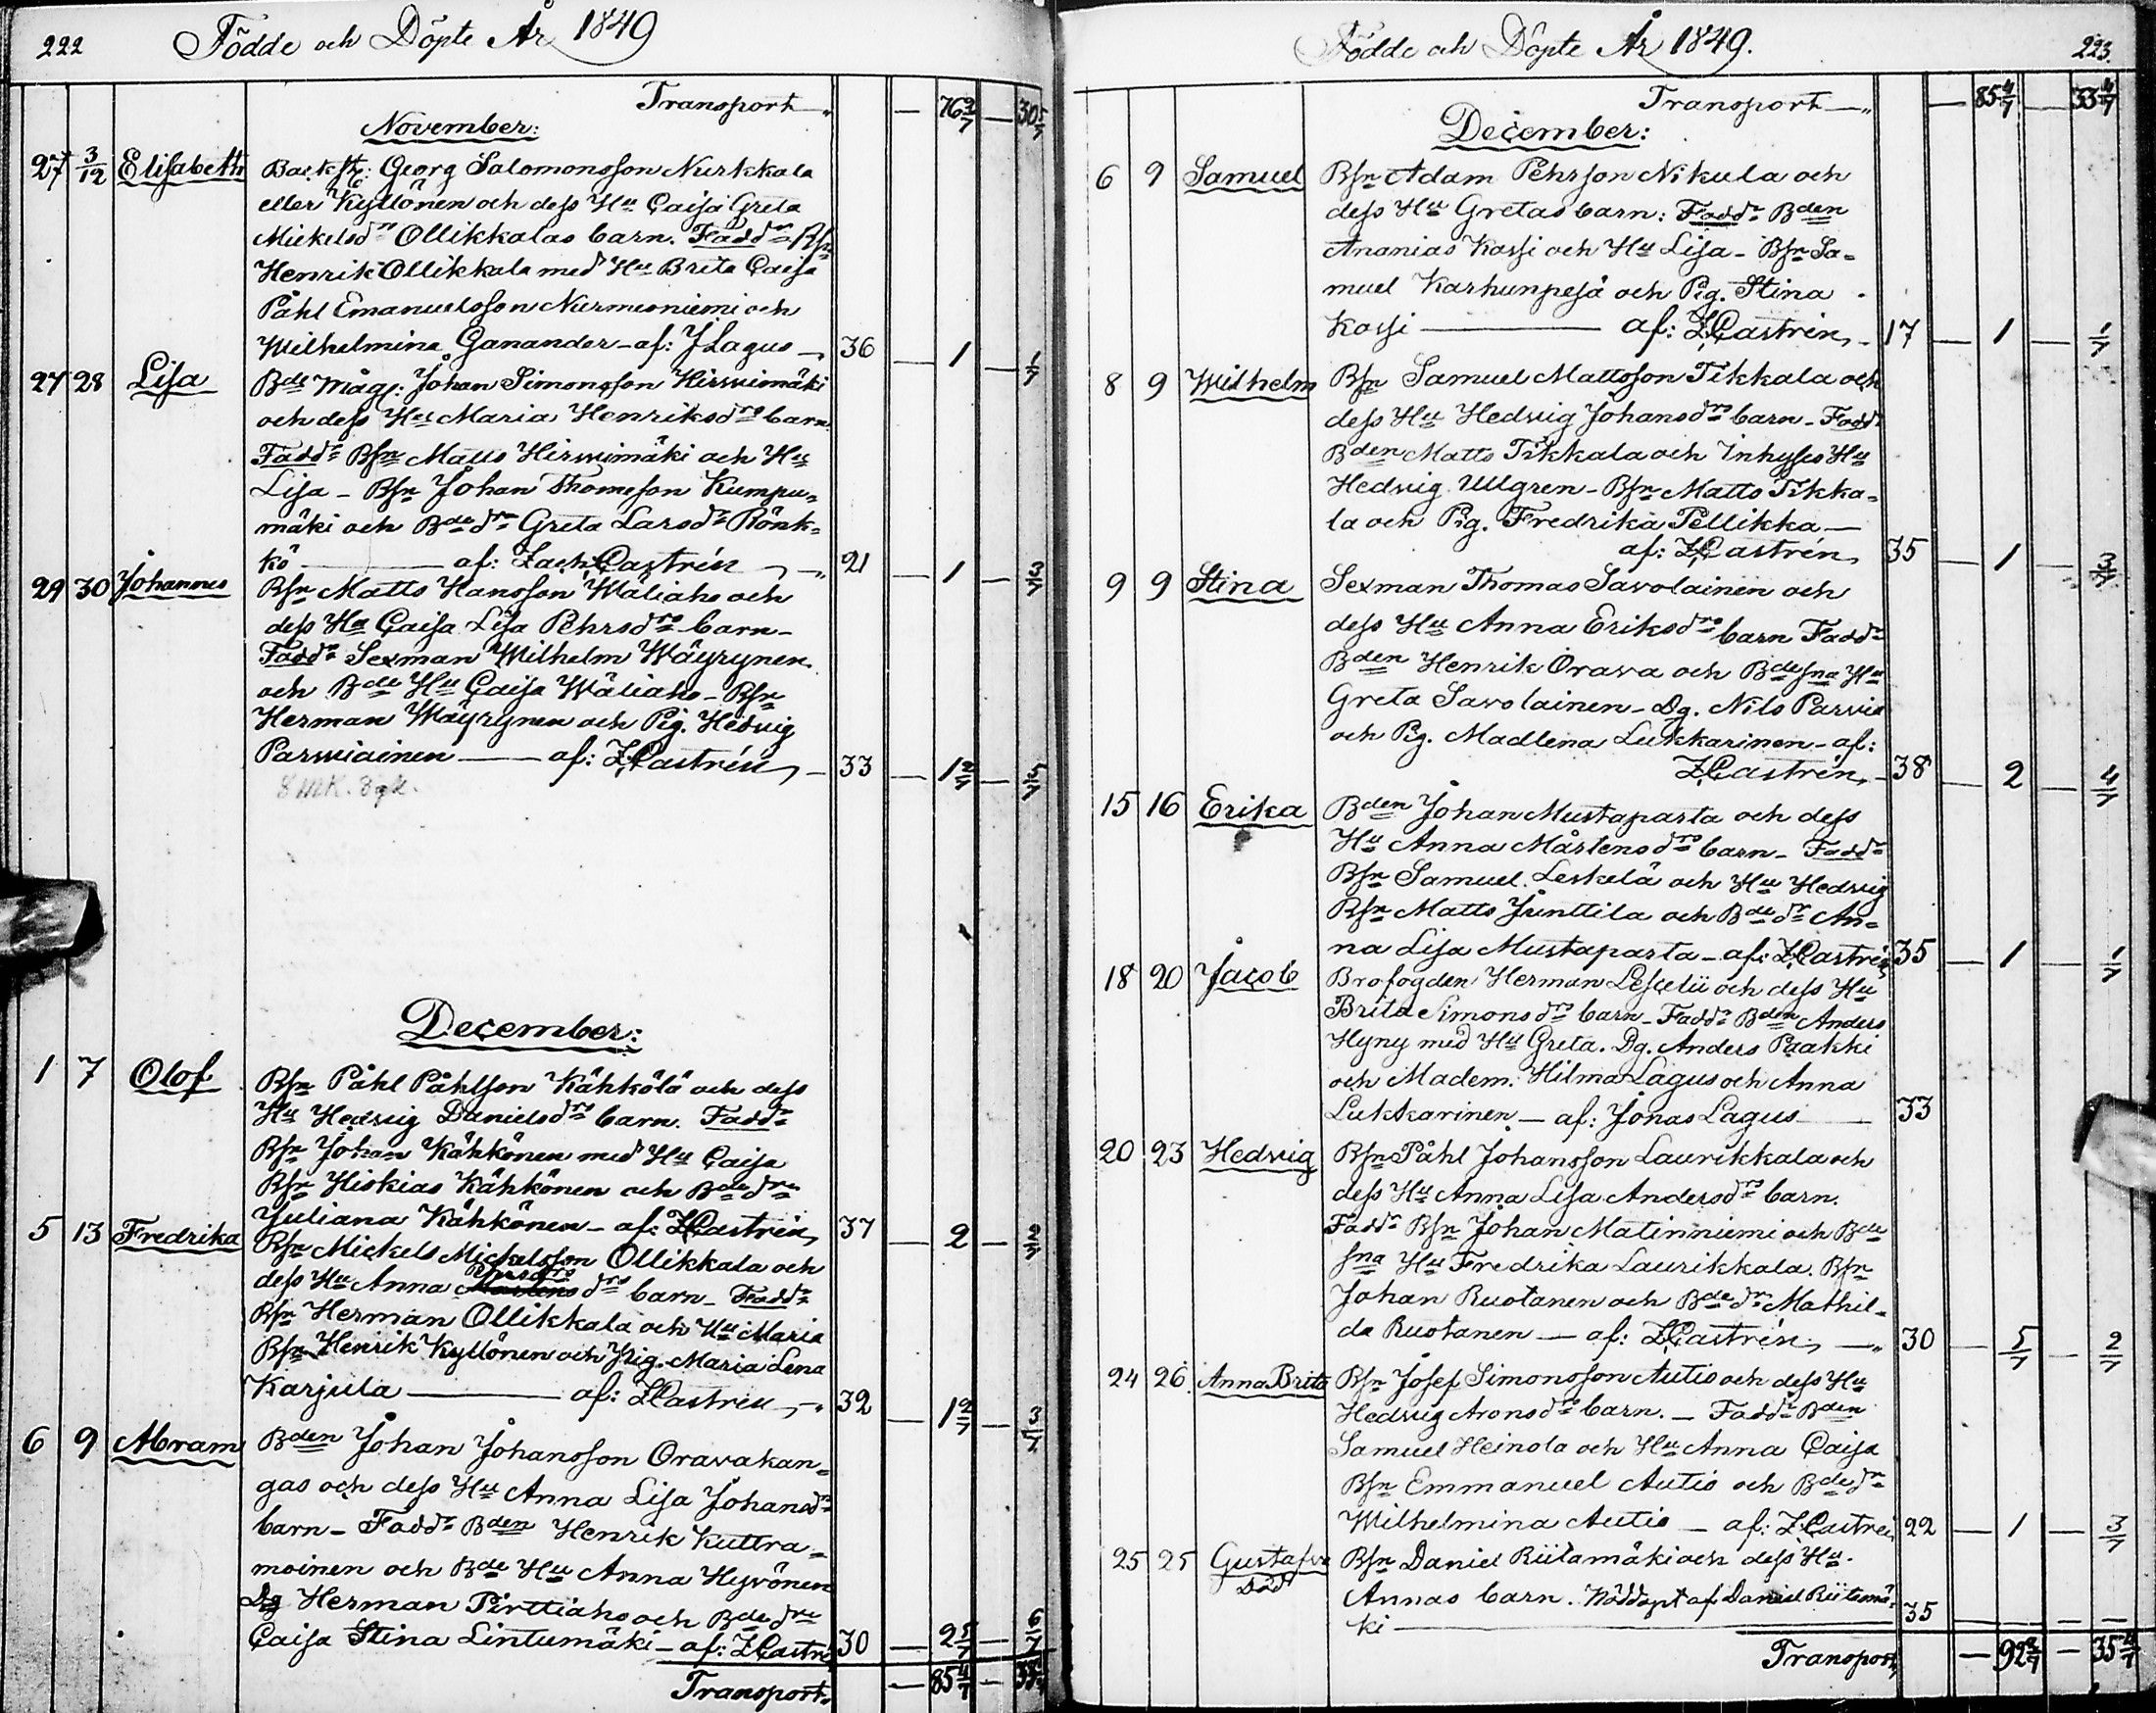 222 Födde och Döpte År 1849
Transport 76 2/7 30 5/7
November:
27 3/12 Elisabeth Backst: Georg Salomonsson Nurkkala
eller Kyllönen och dess Hu Caisa Greta
Mickelsdr Ollikkalas barn. Faddr Bsn
Henrik Ollikkala med Hu Brita Caisa
Påhl Emanuelsson Nurmesniemi och
Wilhelmina Ganander - af: J Lagus 36 1 1/7
27 28 Lisa Bde Mågs: Johan Simonsson Hirwimäki
och dess Hu Maria Henriksdrs barn
Faddr Bsn Matts Hirwimäki och Hu
Lisa - Bsn Johan Thomsson Kumpu-
mäki och Bdedrn Greta Larsdr Rönk-
kö af: Zach: Castrén 21 1 3/7
29 30 Johannes Bsn Matts Hansson Wäliaho och
dess Hu Caisa Lisa Pehrsdrs barn -
Faddr Sexman Wilhelm Wäyrynen
och Bde Hu Caisa Wäliaho - Bsn
Herman Wäyrynen och Pig. Hedvig
Parwiainen af: Z Castrén 33 1 2/7 3/7
December:
1 7 Olof Bsn Påhl Påhlson Kähkölä och dess
Hu Hedvig Danielsdrs barn. Faddr
Bsn Johan Kähkönen med Hu Caisa
Bsn Hiskias Kähkönen och Bdedrn
Juliana Kähkönen - af: Z Castrén 37 2 2/7
5 13 Fredrika Bsn Mickels Mickelsson Ollikkala och
dess Hu Anna Pehrsdrs barn - Faddr
Bsn Herman Ollikkala och Hu Maria
Bsn Henrik Kyllönen och Pig. Maria Lena
Karjula af: Z Castrén 32 1 2/7 3/7
6 9 Abram Bden Johan Johansson Oravakan-
gas och dess Hu Anna Lisa Johansdr
barn - Faddr Bden Henrik Kuttra-
moinen och Bde Hu Anna Hyvönen
Dg Herman Pirttiaho och Bdedrn
Caisa Stina Lintumäki - af: Z Castrén 30 2 5/7 6/7
Transport 85 4/7 33 4/7
Födde och Döpte År 1849. 223.
Transport 85 4/7 33 4/7
December:
6 9 Samuel Bsn Adam Pehrson Nikula och
dess Hu Gretas barn: Faddr Bden
Ananias Kossi och Hu Lisa - Bsn Sa-
muel Karhunpesä och Pig. Stina
Kossi af: Z Castrén 17 1 1/7
8 9 Wilhelm Bsn Samuel Mattsson Tikkala och
dess Hu Hedvig Johansdrs barn - Faddr
Bden Matts Tikkala och Inhyses Hu
Hedvig Ullgren - Bsn Matts Tikka-
la och Pig. Fredrika Pellikka
af: Z Castrén 35 1 3/7
9 9 Stina Sexman Thomas Savolainen och
dess Hu Anna Eriksdrs barn Faddr
Bden Henrik Orava och Bdesna Hu
Greta Savolainen - Dg. Nils Parvia
och Pig. Madlena Lukkarinen - af:
Z Castrén 38 2 4/7
15 16 Erika Bden Johan Mustaparta och dess
Hu Anna Mårtensdrs barn - Faddr
Bsn Samuel Leskelä och Hu Hedvig
Bsn Matts Junttila och Bdedr An-
na Lisa Mustaparta - af: Z Castrén 35 1 1/7
18 20 Jacob Brofogden Herman Lescelii och dess Hu
Brita Simonsdrs barn - Faddr Bden Anders
Hyny med Hu Greta. Dg. Anders Paakki
och Madem. Hilma Lagus och Anna
Lukkarinen - af: Jonas Lagus 33
20 23 Hedvig Bsn Påhl Johansson Laurikkala och
dess Hu Anna Lisa Andersdrs barn.
Faddr Bsn Johan Matinniemi och Bde
sna Hu Fredrika Laurikkala. Bsn
Johan Ruotanen och Bdedr Mathil-
da Ruotanen - af: Z Castrén 30 5/7 2/7
24 26 Anna Brita Bsn Josef Simonsson Autio och dess Hu
Hedvig Aronsdrs barn. - Faddr Bden
Samuel Heinola och Hu Anna Caisa
Bsn Emmanuel Autio och Bdedr
Wilhelmina Autio - af: Z Castrén 22 1 3/7
25 25 Gustafva Bsn Daniel Riitamäki och dess Hu
Död Annas barn. Nöddöpt af Daniel Riitamä-
ki 35
Transport 92 2/7 35 4/7